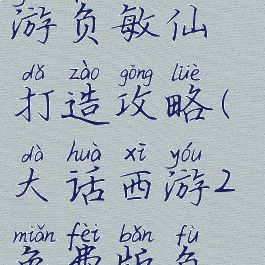 游负敏仙
dǎ zào gōng lüè
打造攻略(
dà huà xī yóu
大话西游2
miǎn fèi bǎn fù
免费版负